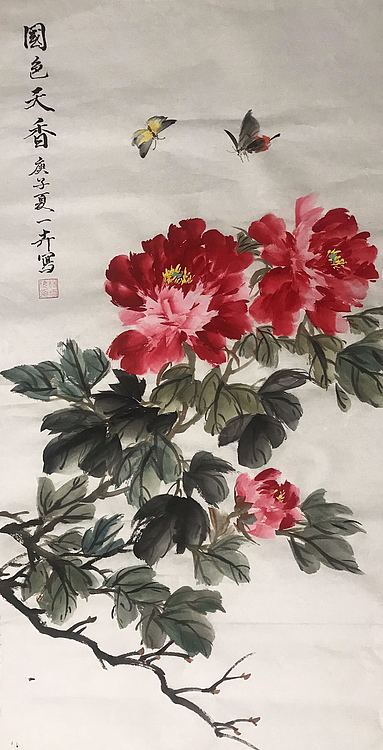 國色天香
庚子夏一卉寫